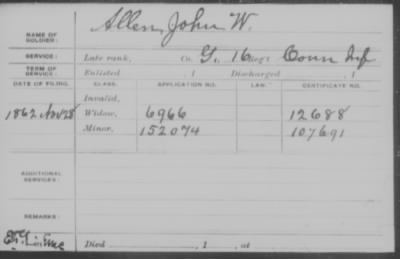 NAME OF SOLDIER: Allen, John W.
SERVICE: Late rank, Co. G, 16 Reg't Conn Inf
TERM OF SERVICE: Enlisted , 1 Discharged , 1
DATE OF FILING. CLASS. APPLICATION NO. LAW. CERTIFICATE NO.
Invalid,
1862 Nov 28 Widow, 6966 12688
Minor, 152074 107691
ADDITIONAL SERVICES:
REMARKS:
Died , 1 , at